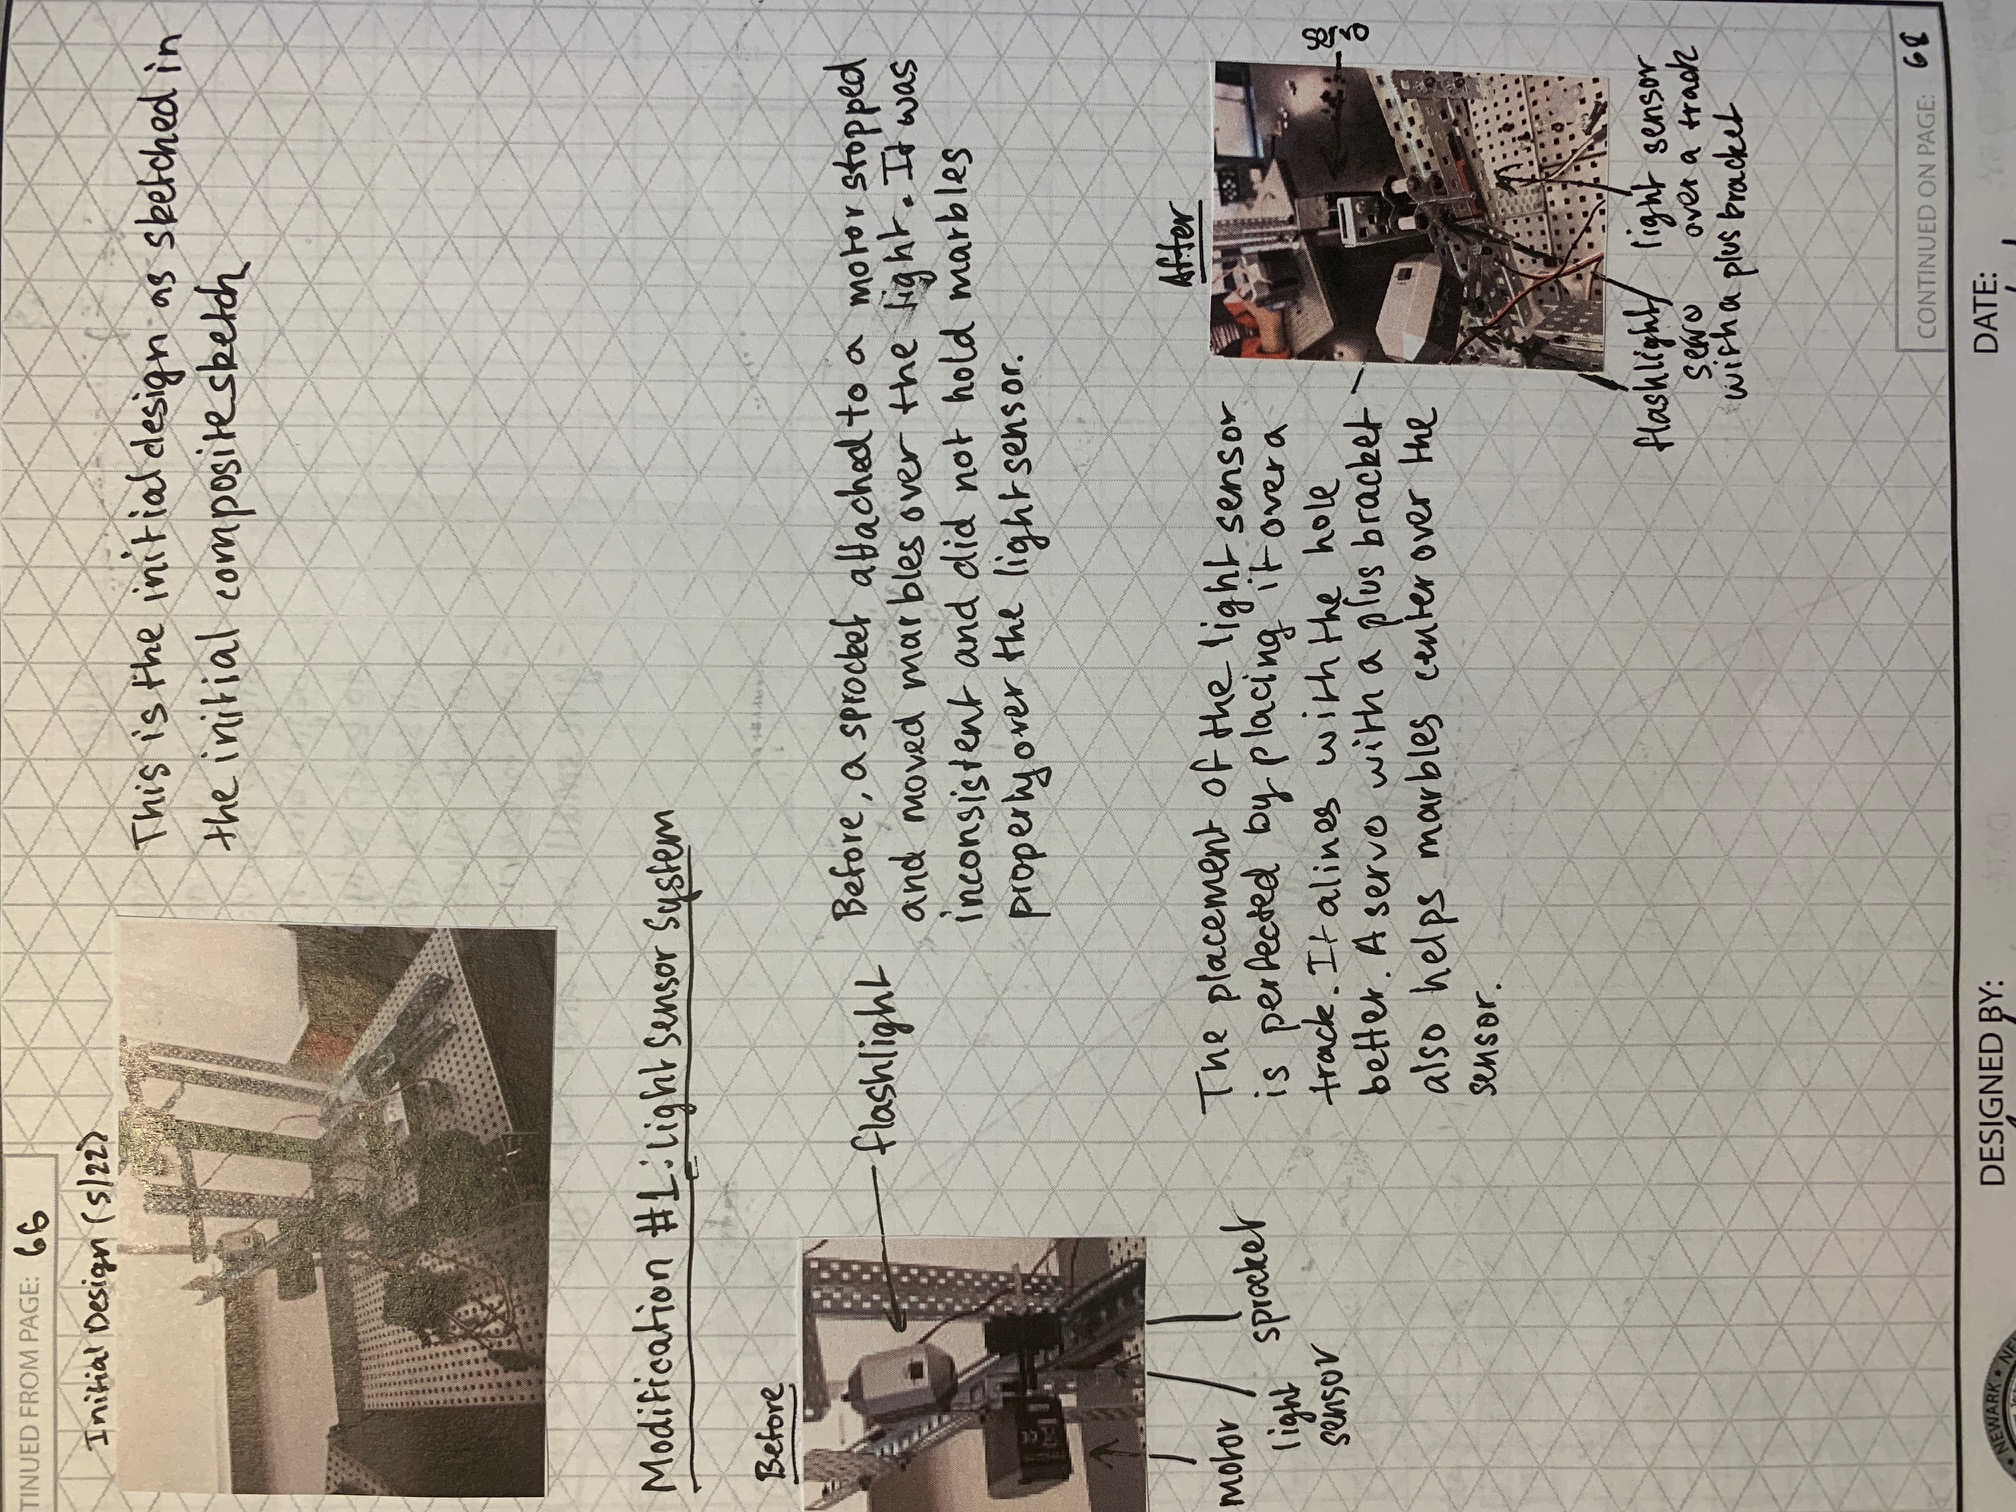 TINUED FROM PAGE: 66
Initial Design (5/22)
This is the initial design as sketched in
the initial composite sketch
Modification #1: light Sensor System
Before
flashlight
Before, a sprocket attached to a motor stopped
and moved marbles over the light. It was
inconsistent and did not hold marbles
properly over the light sensor.
motor
light
sensor
sprocket
After
The placement of the light sensor
is perfected by placing it over a
track. It alines with the hole
better. A servo with a plus bracket
also helps marbles center over the
sensor.
servo
flashlight
servo
with a plus bracket
light sensor
over a track
CONTINUED ON PAGE: 68
NEWARK
DESIGNED BY:
DATE: